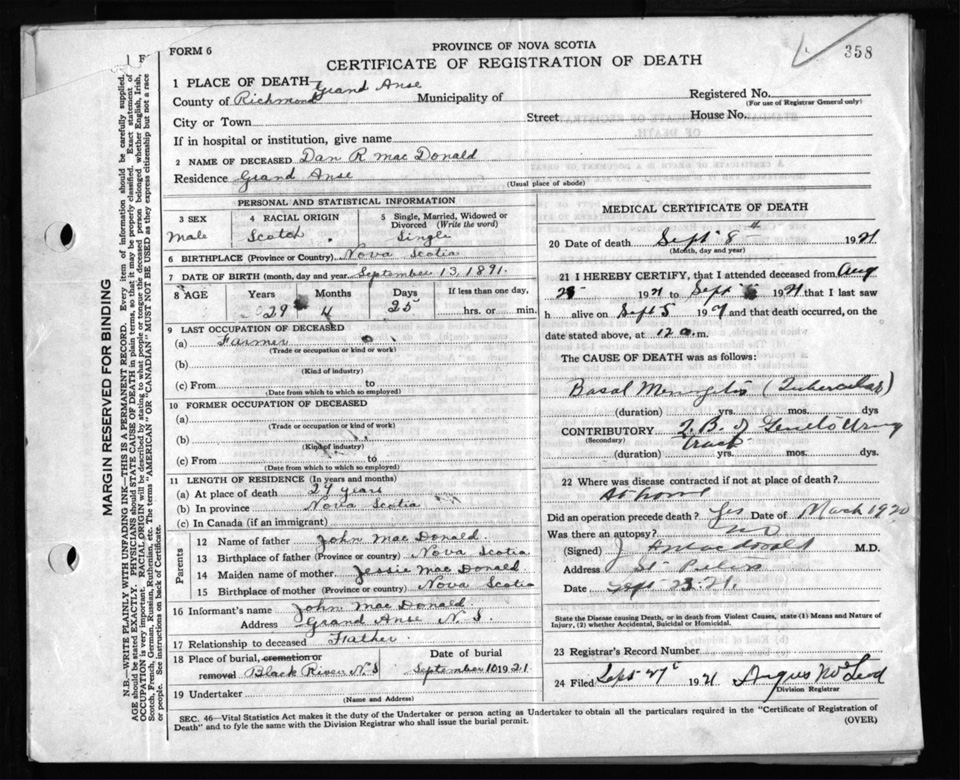 FORM 6
PROVINCE OF NOVA SCOTIA
CERTIFICATE OF REGISTRATION OF DEATH
358
1 PLACE OF DEATH— Grand Anse
County of Richmond Municipality of
Registered No.
(For use of Registrar General only)
City or Town Street House No.
If in hospital or institution, give name
2 NAME OF DECEASED Dan R Mac Donald
Residence Grand Anse
(Usual place of abode)
PERSONAL AND STATISTICAL INFORMATION
3 SEX 4 RACIAL ORIGIN 5 Single, Married, Widowed or Divorced (Write the word)
Male Scotch Single
6 BIRTHPLACE (Province or Country) Nova Scotia
7 DATE OF BIRTH (month, day and year) September 13, 1891.
8 AGE Years Months Days If less than one day,
29 25 hrs. or min.
9 LAST OCCUPATION OF DECEASED
(a) Farmer
(Trade or occupation or kind of work)
(b)
(Kind of industry)
(c) From to
(Date from which to which so employed)
10 FORMER OCCUPATION OF DECEASED
(a)
(Trade or occupation or kind of work)
(b)
(Kind of industry)
(c) From to
(Date from which to which so employed)
11 LENGTH OF RESIDENCE (In years and months)
(a) At place of death 29 years
(b) In province Nova Scotia
(c) In Canada (if an immigrant)
Parents
12 Name of father John Mac Donald
13 Birthplace of father (Province or country) Nova Scotia
14 Maiden name of mother Jessie Mac Donald
15 Birthplace of mother (Province or country) Nova Scotia
16 Informant's name John Mac Donald
Address Grand Anse N. S.
17 Relationship to deceased Father
18 Place of burial, cremation or removal Black River N.S Date of burial September 10 1921
19 Undertaker
(Name and Address)
MEDICAL CERTIFICATE OF DEATH
20 Date of death Sept 8th 1921
(Month, day and year)
21 I HEREBY CERTIFY, that I attended deceased from Aug
25 1921 to Sept 1921 that I last saw
h alive on Sept 5 1921 and that death occurred, on
date stated above, at 12 a.m.
The CAUSE OF DEATH was as follows:
Basal Meningitis (Tubercular)
(duration) yrs. mos. dys
CONTRIBUTORY T. B. of Genito Urinary
(Secondary) tract
(duration) yrs. mos. dys.
22 Where was disease contracted if not at place of death?
At home
Did an operation precede death? Yes Date of March 1920
Was there an autopsy? No
(Signed) J Macdonald M.D.
Address St Peters
Date Sept 23. 21.
State the Disease causing Death, or in death from Violent Causes, state (1) Means and Nature of Injury, (2) whether Accidental, Suicidal or Homicidal.
23 Registrar's Record Number
24 Filed Sept 27 1921 Angus McLeod
Division Registrar
SEC. 46—Vital Statistics Act makes it the duty of the Undertaker or person acting as Undertaker to obtain all the particulars required in the "Certificate of Registration of
Death" and to fyle the same with the Division Registrar who shall issue the burial permit.
(OVER)
MARGIN RESERVED FOR BINDING
N.B.—WRITE PLAINLY WITH UNFADING INK—THIS IS A PERMANENT RECORD. Every item of information should be carefully supplied.
AGE should be stated EXACTLY. PHYSICIANS should STATE CAUSE OF DEATH in plain terms, so that it may be properly classified. Exact statement of
OCCUPATION is very important. RACIAL ORIGIN will be described by stating to what people or tongue the deceased person belonged whether English, Irish,
Scotch, French, German, Russian, Ruthenian, etc. The terms "AMERICAN" OR "CANADIAN" MUST NOT BE USED as they express citizenship but not a race
or people. See instructions on back of Certificate.